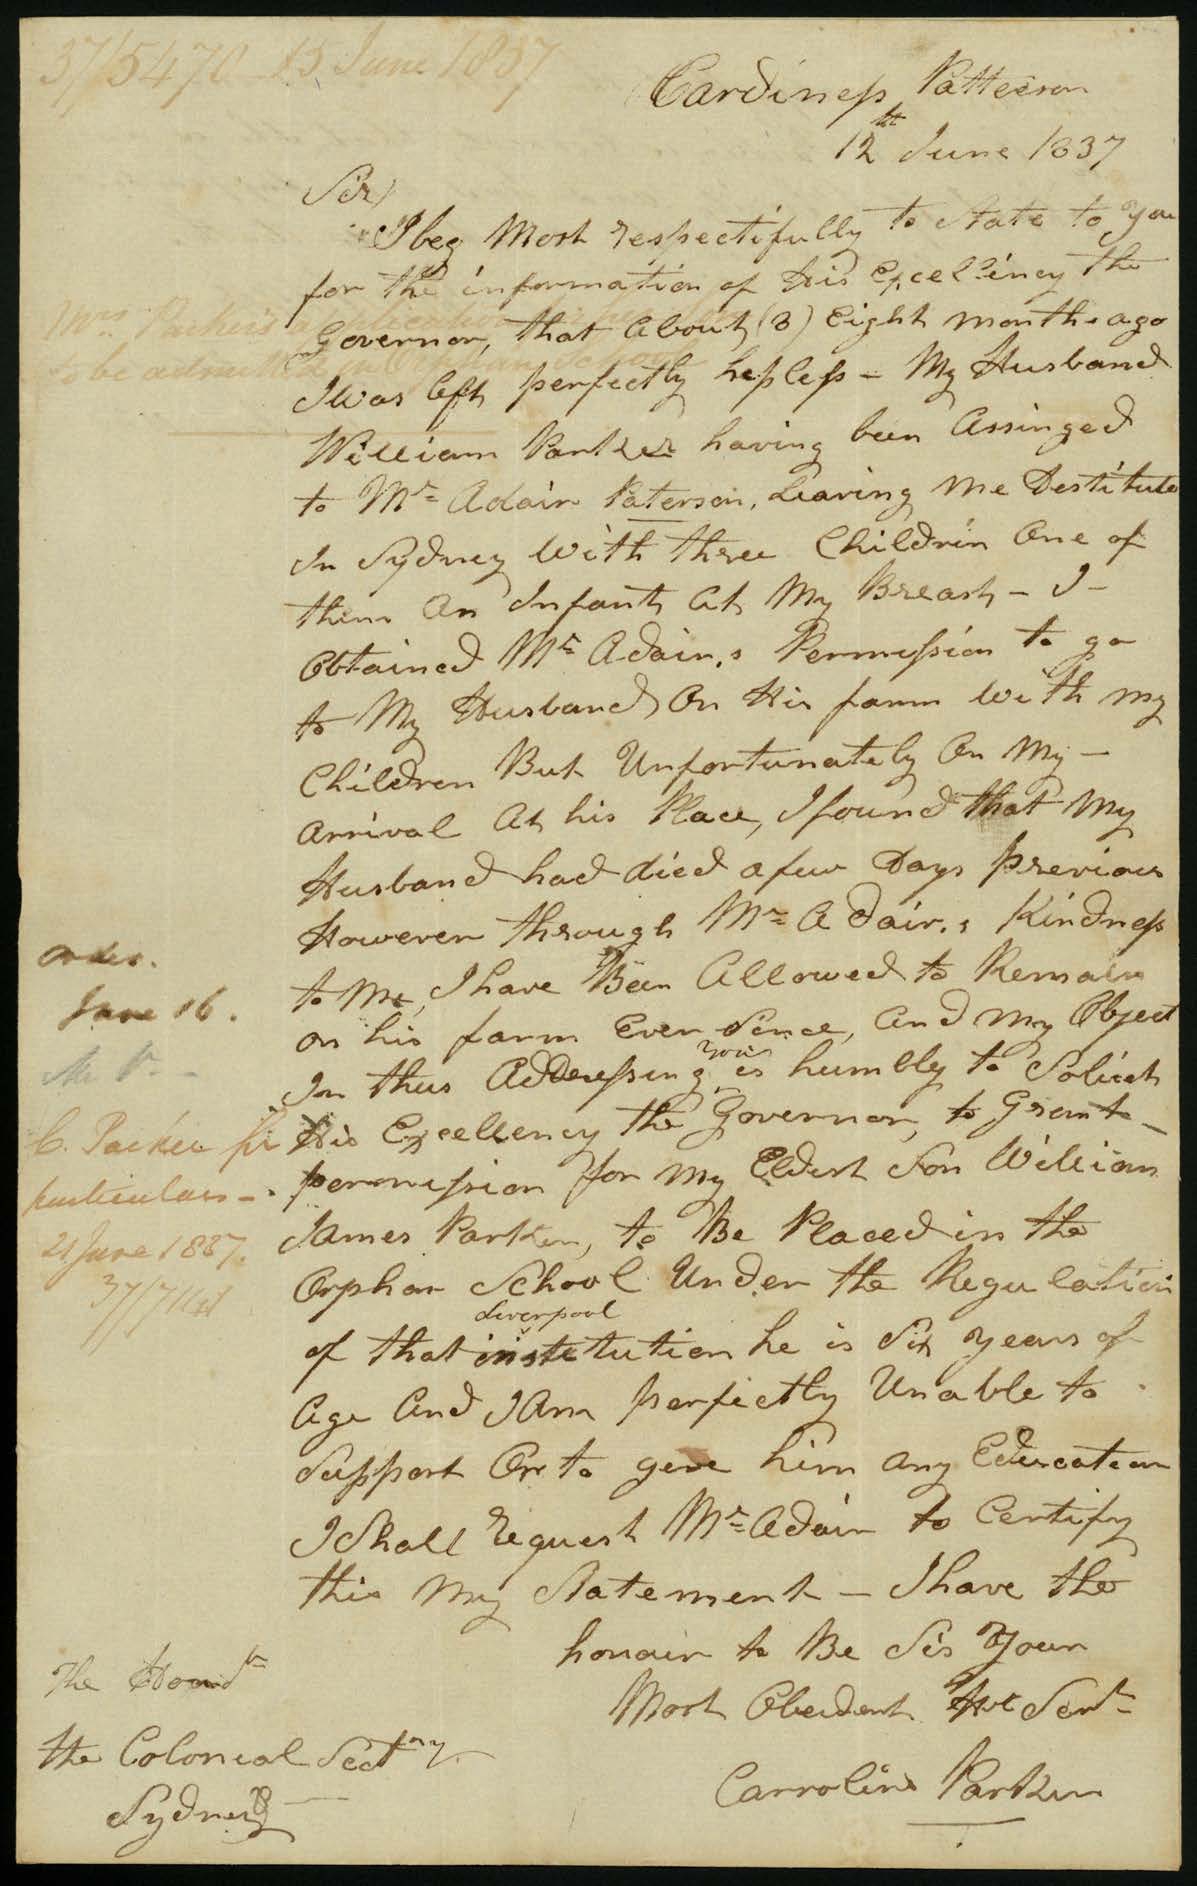 37/5470 15 June 1837
Cardiness Patterson
12th June 1837
Sir/
I beg Most respectifully to State to You
for the information of His Excellincy the
Governor, that About (8) Eight months ago
I was left perfectly hepless - My Husband
William Parker having been Assinged
to Mr Adair Paterson, Leaving me Destitute
In Sydney With three Childrin One of
them An Infant At My Breast - I -
Obtained Mr Adair,s Permission to go
to My Husband On His farm With my
Children But Unfortunately On My -
arrival At his Place, I found that My
Husband had died a few Days previous
However through Mr Adair,s Kindness
to Me, I have Been Allowed to Remain
on his farm Ever Sence, And my Object
In thus Addressing your is humbly to Solicit
His Excellency the Governor, to Grant -
permission for my Eldest Son William
James Parker, to Be Placed in the
Orphan School Under the Regulation
Liverpool
of that institution he is Six years of
Age And I Am perfictly Unable to
Support Or to geve him any Education
I Shall request Mr Adair to Certify
this My Statement - I have the
honair to Be Sir Your
Most Obeident Hbt Servt
Carroline Parker
Mrs Parker's
to be admitted
Order.
June 16.
C. Parker for
particulars -
21 June 1837.
The Honr
the Colonial Sectary
Sydney